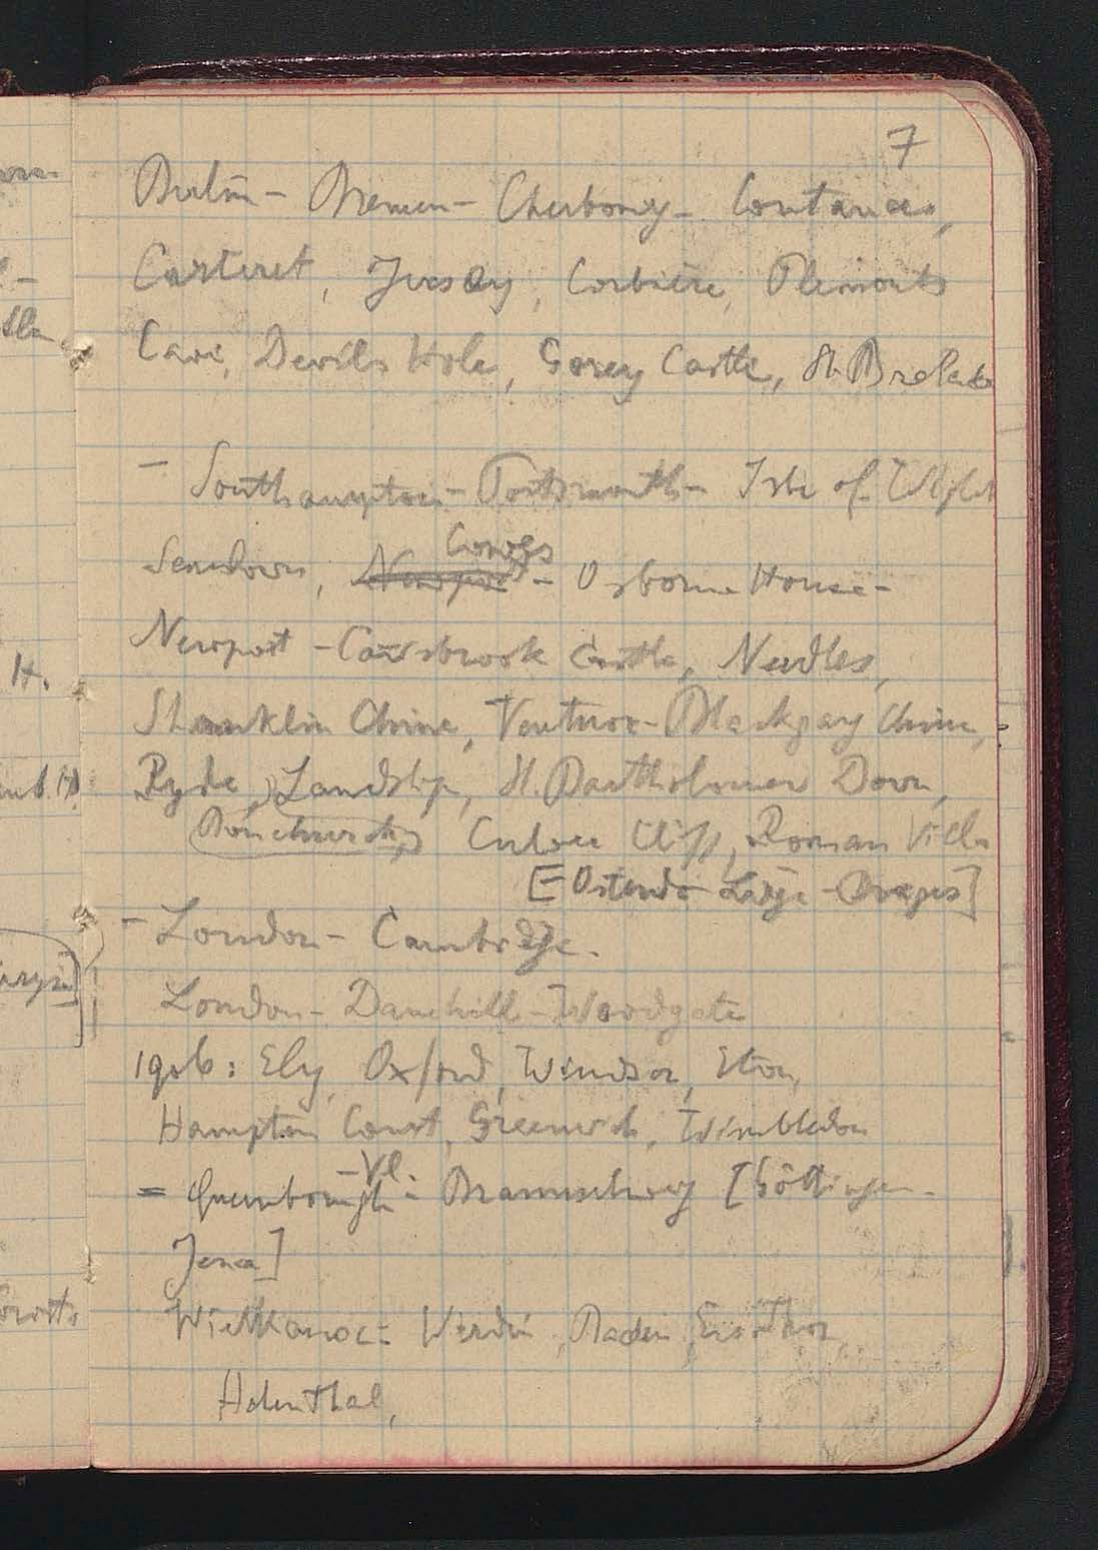 7
Berlin - Bremen - Cherbourg - Coutances,
Carteret, Jersey, Corbière, Plemonts
Cave, Devils Hole, Gorey Castle, St. Brelade
- Southampton - Portsmouth - Isle of Wight
Sandown, Newport Cowes - Osborne House -
Newport - Carisbrook Castle, Needles,
Shanklin Chine, Ventnor - Blackgang Chine,
Ryde, Landslip, St. Bartholomew Down,
Bonchurch, Culver Cliff, Roman Villa
[- Ostende - Liège - Bruges]
- London - Cambridge.
London - Danehill - Woodgate
1906: Ely, Oxford, Windsor, Eton,
Hampton Court, Greenwich, Wimbledon
= Queenborough - Vl. - Braunschweig [Göttingen -
Jena]
Wielkanoc: Baden